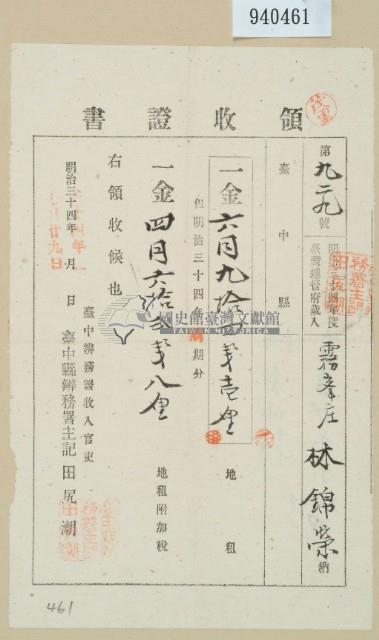 940461
領收證書
第九二九號
明治三十四年度
臺灣總督府歲入
霧峯庄 林錦榮 納
臺中縣
一金六円九拾 錢壱厘 地租
但明治三十四年 期分
一金四円六拾 錢八厘 地租附加稅
右領收候也
明治三十四年 月 日
廿九日
臺中辨務署收入官吏
臺中縣辨務署主記 田尻潮
國史館臺灣文獻館
TAIWAN HISTORICA
461